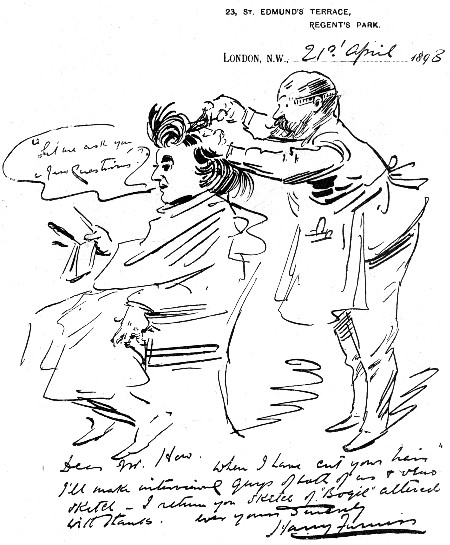 23, ST. EDMUND'S TERRACE,
REGENT'S PARK.
LONDON, N.W., 21st April 1893
"Let me ask you
a few Questions"
Dear Mr. How. When I have cut your hair"
I'll make interview guys of both of us &
sketch – I return you sketch of "Bogie" altered
with thanks. Ever yours Sincerely
Harry Furniss